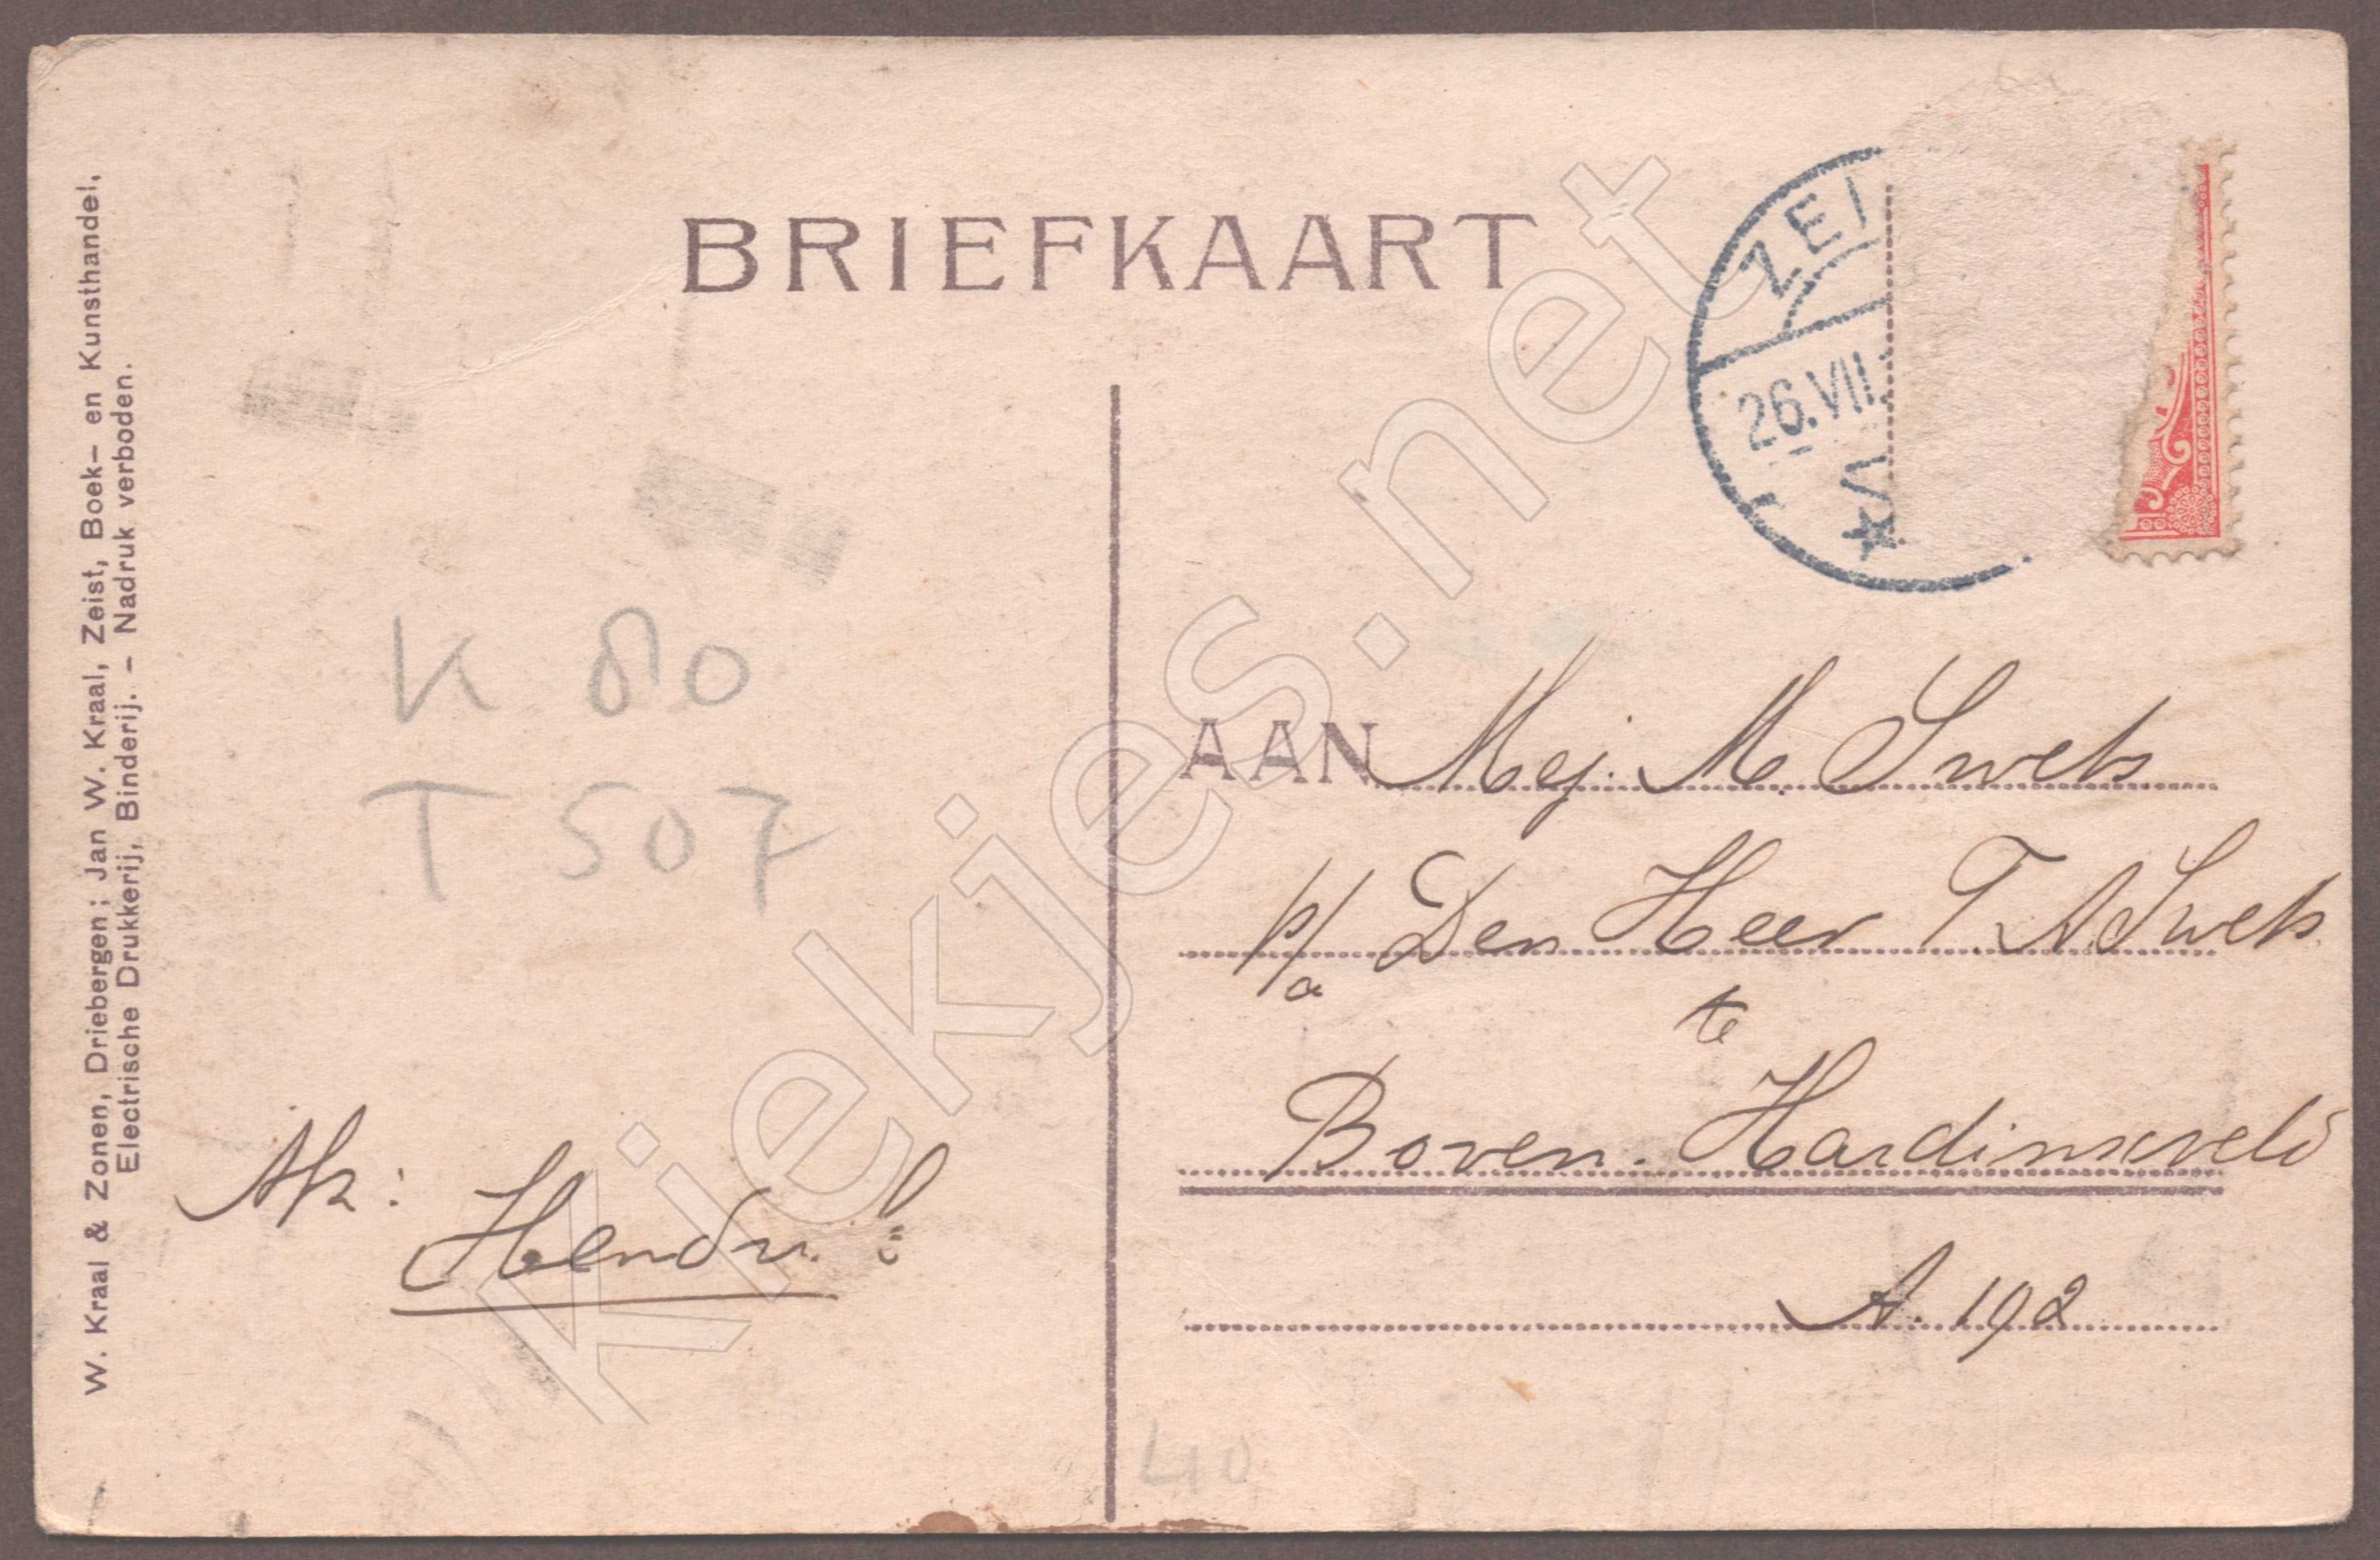 BRIEFKAART
ZEI
26.VII.
W. Kraal & Zonen, Driebergen; Jan W. Kraal, Zeist, Boek- en Kunsthandel,
Electrische Drukkerij, Binderij. - Nadruk verboden.
K 80
T 507
AAN Mej. M. Swets
p/a Den Heer T. A Swets
te
Boven. Hardinxveld
A. 192
Afz:
40
Kiekjes.net